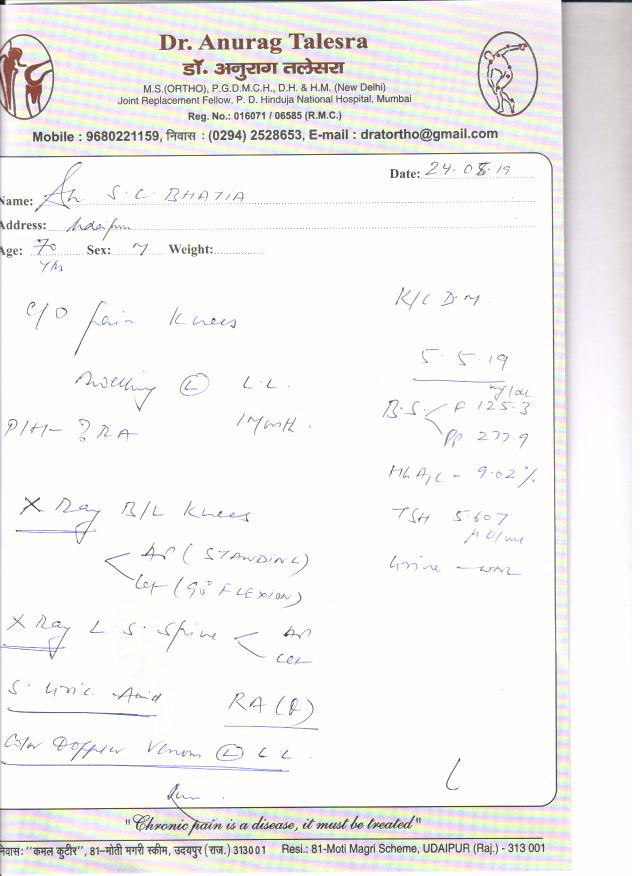 Dr. Anurag Talesra
डॉ. अनुराग तलेसरा
M.S.(ORTHO), P.G.D.M.C.H., D.H. & H.M. (New Delhi)
Joint Replacement Fellow, P. D. Hinduja National Hospital, Mumbai
Reg. No.: 016071 / 06585 (R.M.C.)
Mobile : 9680221159, निवास : (0294) 2528653, E-mail : dratortho@gmail.com
Date: 24.08.19
Name: Sh S.C. BHATIA
Address: Udaipur
Age: 70 yrs Sex: M Weight:
K/C D.M.
C/O Pain Knees
5.5.19
Swelling (L) L.L.
1 Month.
B.S. F 125.3 mg/dl
PP 277.9
P/H - ? RA
HbA1C - 9.02 %
X Ray B/L Knees
TSH 5.607
µU/ml
AP (STANDING)
Lat (90° FLEXION)
Urine - WNL
X Ray L.S. Spine AP
Lat
S. Uric Acid RA (Q)
Color Doppler Venous (L) L L.
"Chronic pain is a disease, it must be treated"
निवास: "कमल कुटीर", 81-मोती मगरी स्कीम, उदयपुर (राज.) 313001 Resi.: 81-Moti Magri Scheme, UDAIPUR (Raj.) - 313 001